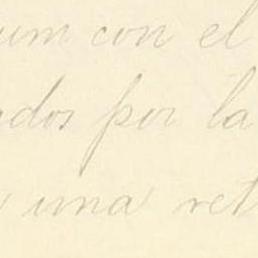 um con el
ados por la
una ret